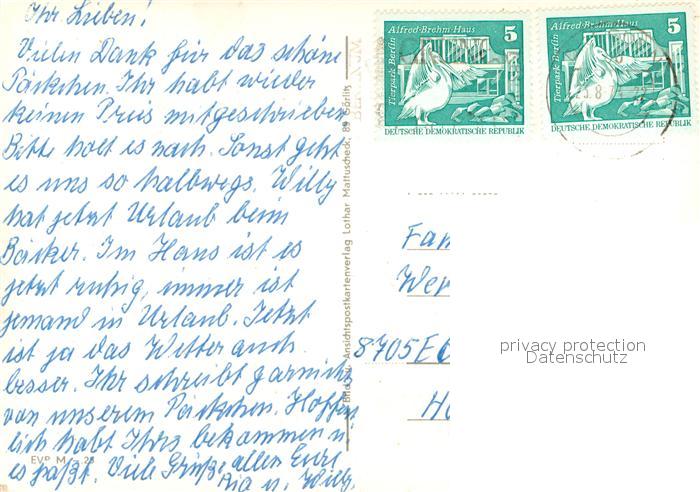 Ihr Lieben!
Vielen Dank für das schöne
Päckchen. Ihr habt wieder
keinen Preis mitgeschrieben
Bitte holt es nach. Sonst geht
es uns so halbwegs. Willy
hat jetzt Urlaub beim
Bäcker. Im Haus ist es
jetzt ruhig, immer ist
jemand in Urlaub. Jetzt
ist ja das Wetter auch
besser. Ihr schreibt garnicht
von unserem Päckchen. Hoffent
lich habt Ihrs bekommen u.
es paßt. Viele Grüße allen Eure
Ria u. Willy.
EVP M -.25
Bild u. Ansichtspostkartenverlag Lothar Mattuscheck, 89 Görlitz
Alfred-Brehm-Haus
5
Tierpark Berlin
DEUTSCHE DEMOKRATISCHE REPUBLIK
Alfred-Brehm-Haus
5
Tierpark Berlin
DEUTSCHE DEMOKRATISCHE REPUBLIK
Fam
Wer
8705
privacy protection
Datenschutz